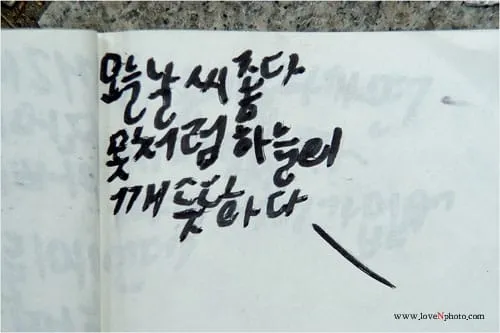 오늘날씨좋다
못처럼 하늘이
깨끗하다
www.loveNphoto.com